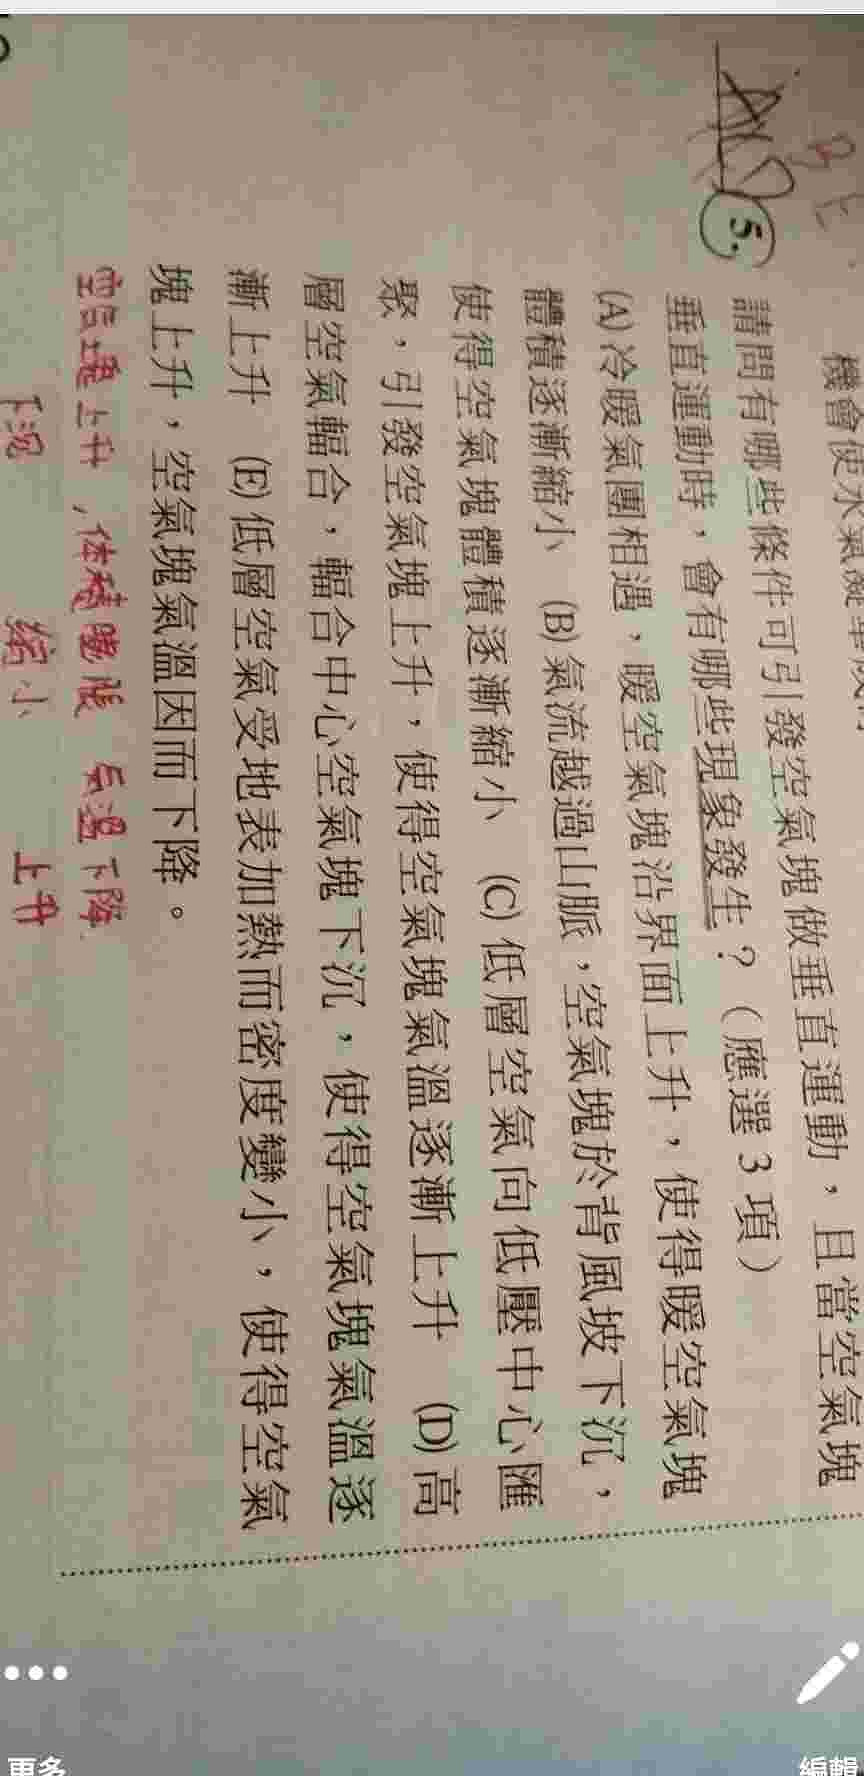 機會使水氣凝
5. 請問有哪些條件可引發空氣塊做垂直運動，且當空氣塊
垂直運動時，會有哪些現象發生？（應選3項）
(A)冷暖氣團相遇，暖空氣塊沿界面上升，使得暖空氣塊
體積逐漸縮小 (B)氣流越過山脈，空氣塊於背風坡下沉，
使得空氣塊體積逐漸縮小 (C)低層空氣向低壓中心匯
聚，引發空氣塊上升，使得空氣塊氣溫逐漸上升 (D)高
層空氣輻合，輻合中心空氣塊下沉，使得空氣塊氣溫逐
漸上升 (E)低層空氣受地表加熱而密度變小，使得空氣
塊上升，空氣塊氣溫因而下降。
上升，体積膨脹 氣溫下降
下沉 縮小 上升
編輯
更多